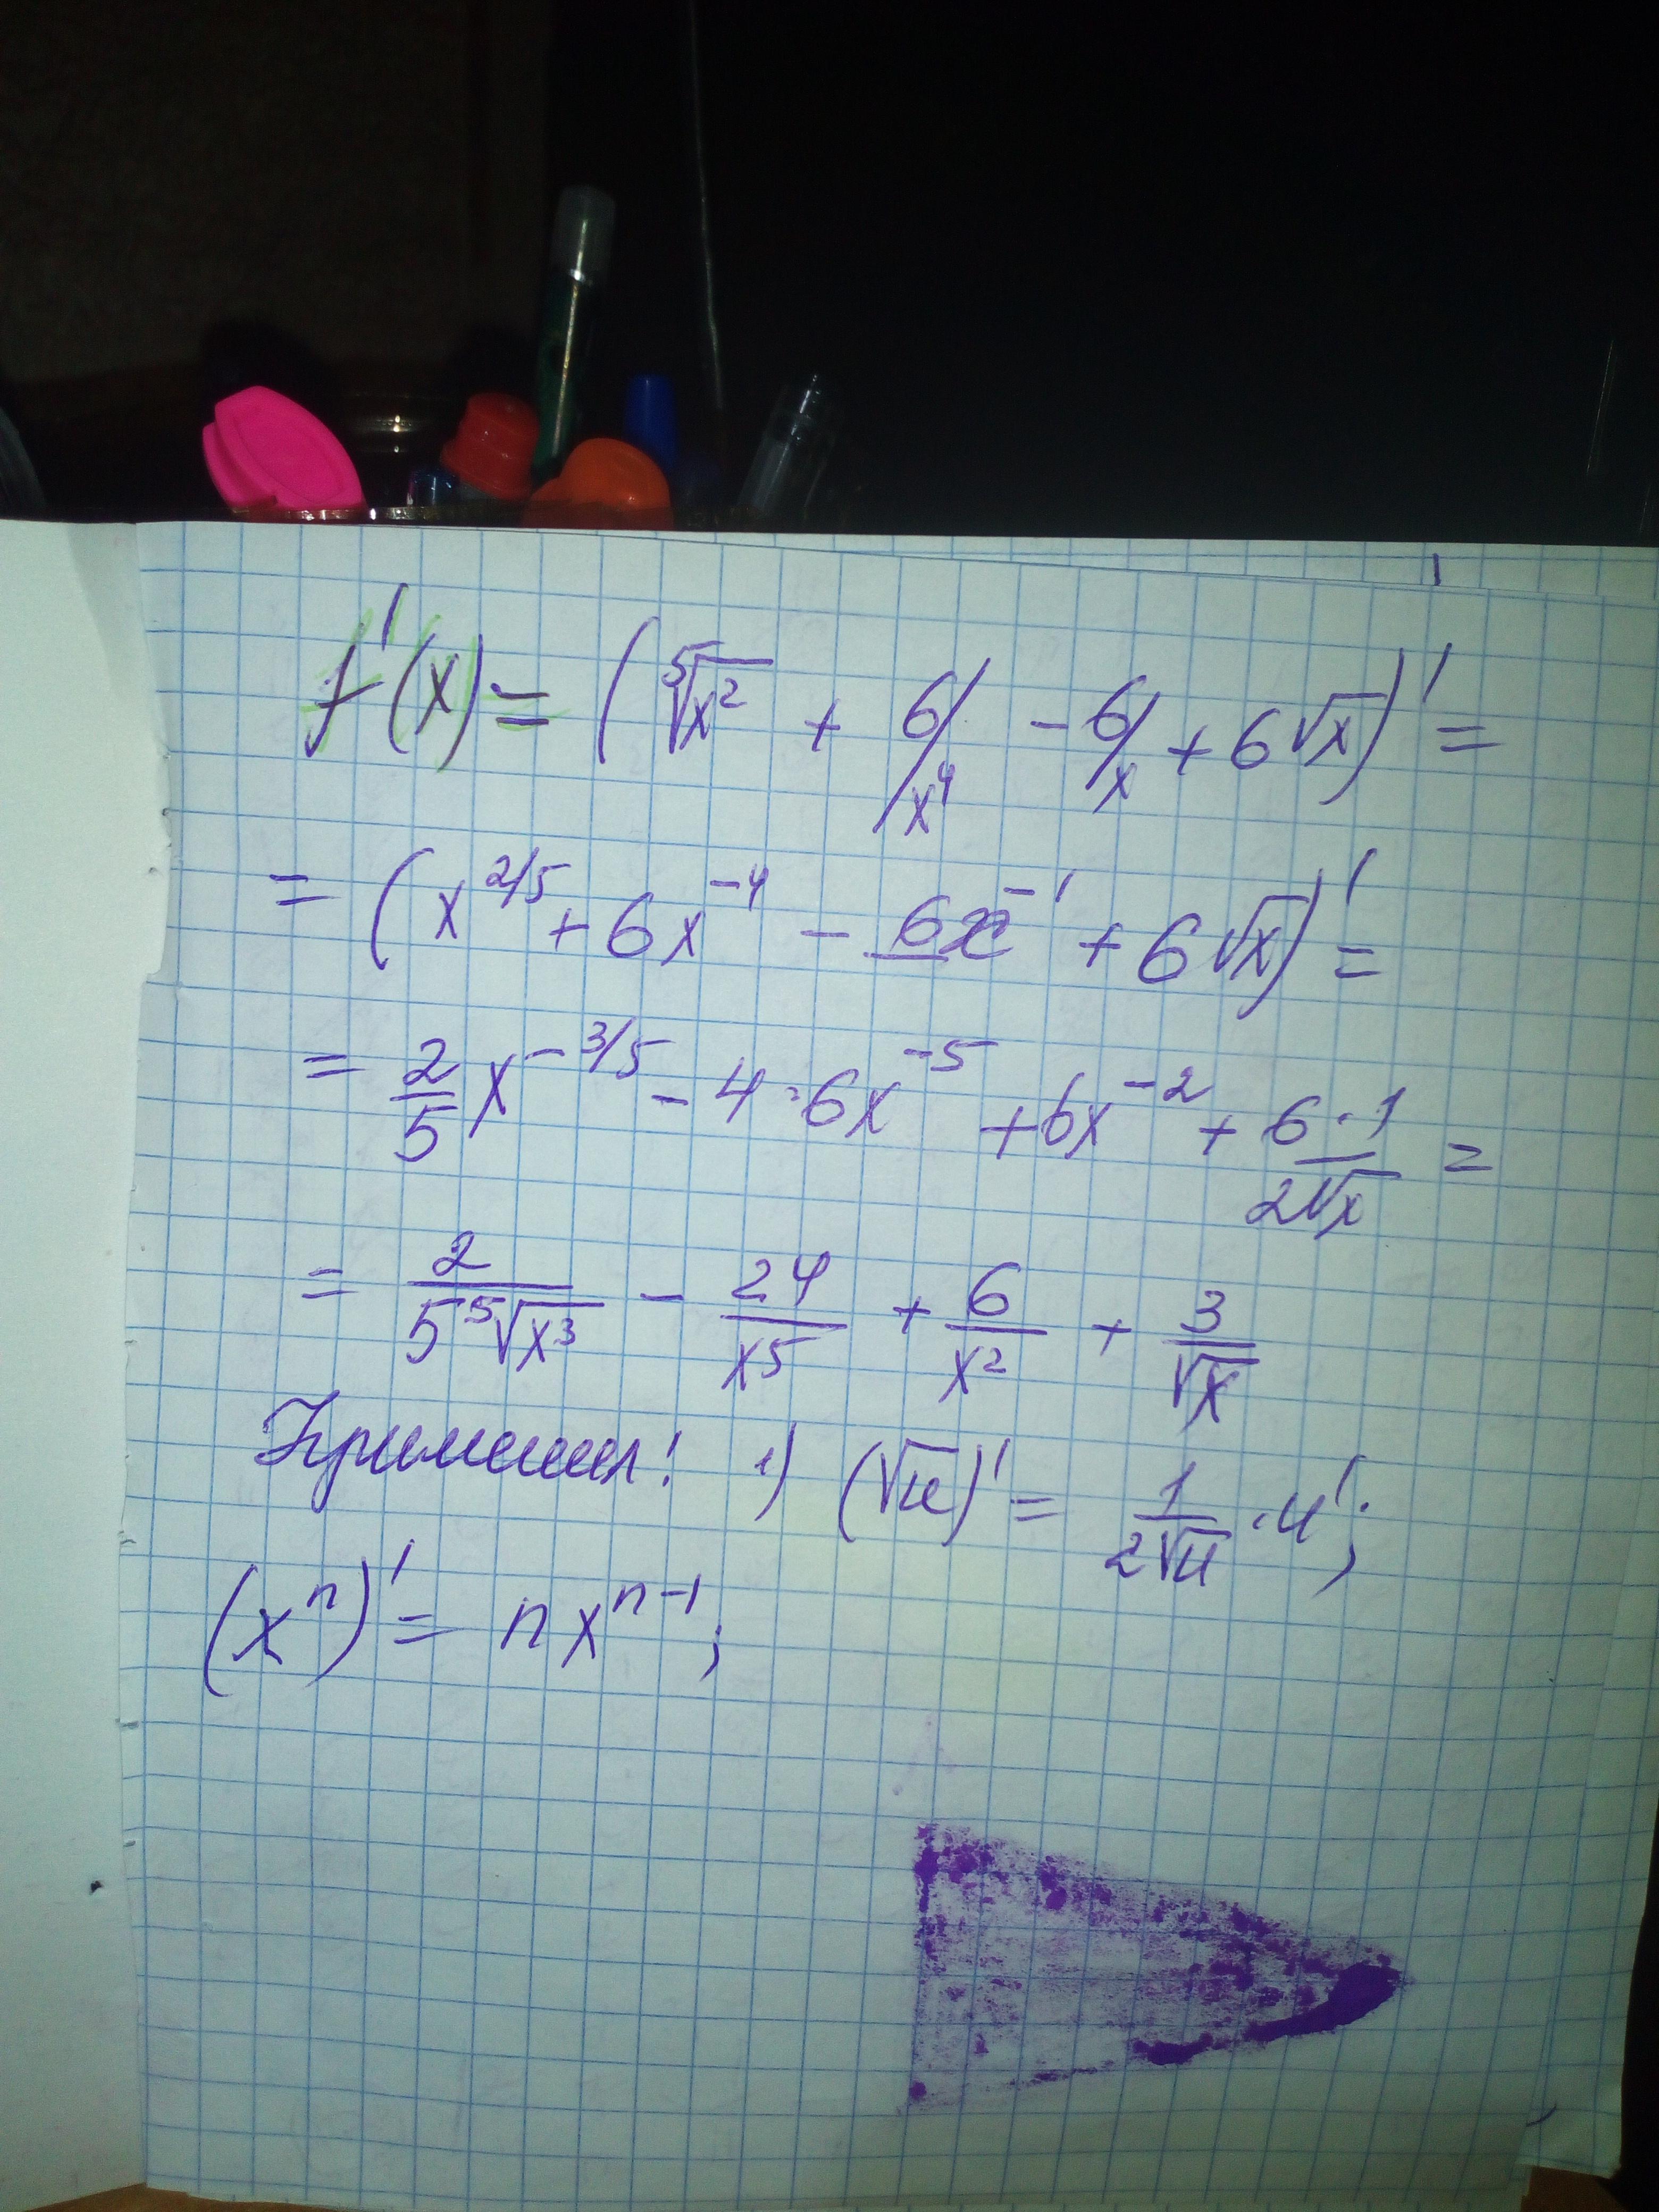 f'(x) = (⁵√x² + 6/x⁴ - 6/x + 6√x)' =
= (x^2/5 + 6x^-4 - 6x^-1 + 6√x)' =
= 2/5 x^-3/5 - 4·6x^-5 + 6x^-2 + 6·1/2√x =
= 2/5⁵√x³ - 24/x⁵ + 6/x² + 3/√x
1) (√u)' = 1/2√u · u';
(xⁿ)' = nxⁿ⁻¹;